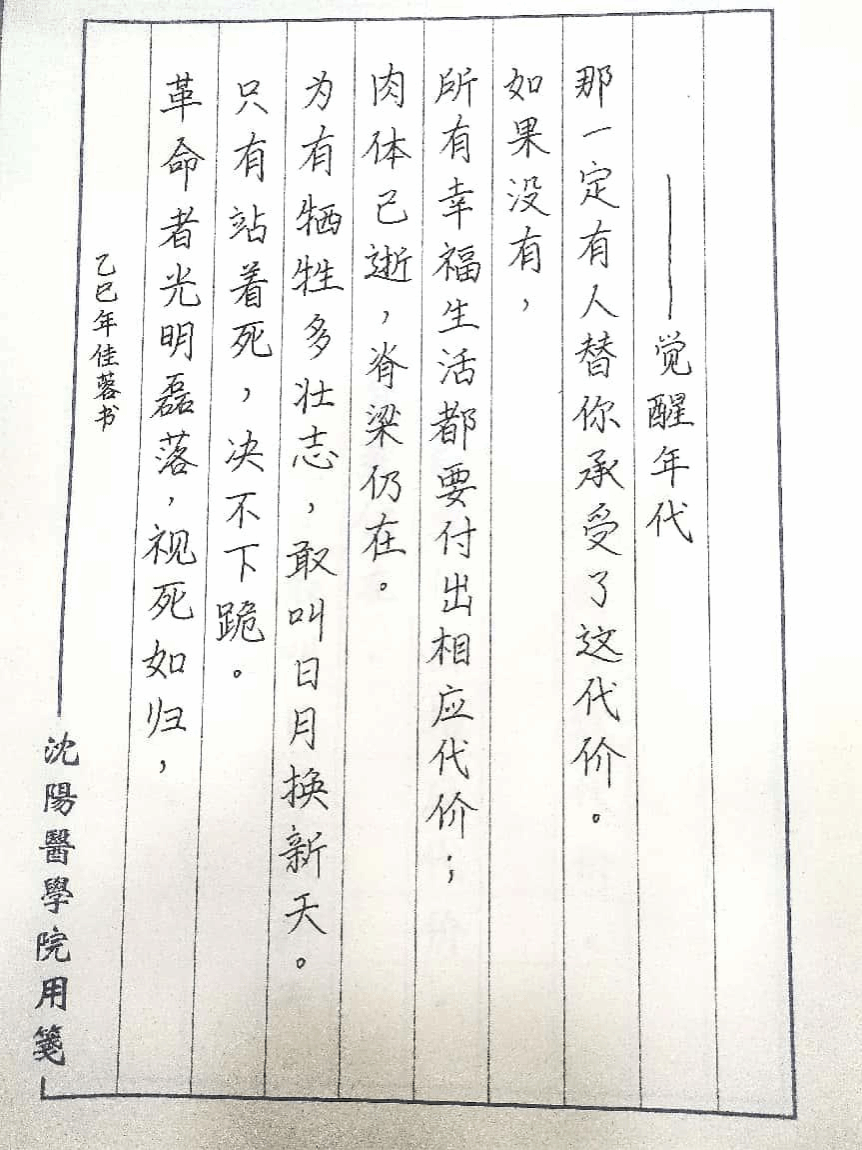 革命者光明磊落，视死如归，
只有站着死，决不下跪。
为有牺牲多壮志，敢叫日月换新天。
肉体已逝，脊梁仍在。
所有幸福生活都要付出相应代价；
如果没有，
那一定有人替你承受了这代价。
——觉醒年代
乙巳年佳蓉书
沈陽醫學院用箋